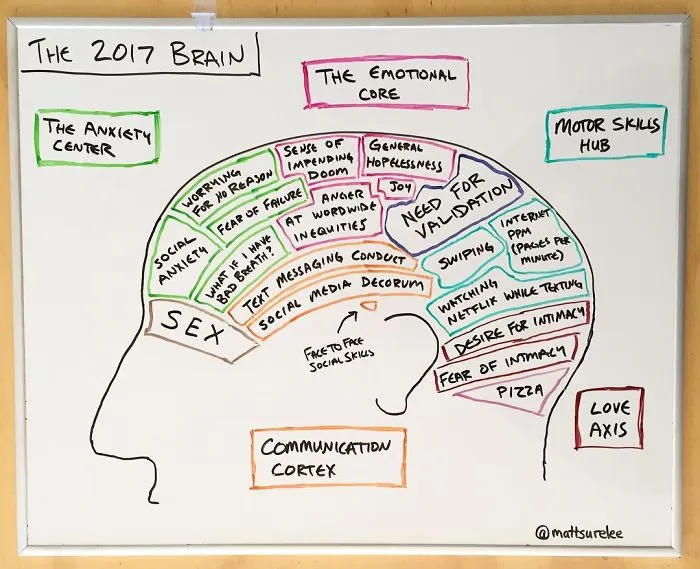 THE 2017 BRAIN
THE EMOTIONAL
CORE
THE ANXIETY
CENTER
MOTOR SKILLS
HUB
WORRYING
FOR NO REASON
SENSE OF
IMPENDING
DOOM
GENERAL
HOPELESSNESS
JOY
NEED FOR
VALIDATION
FEAR OF FAILURE
ANGER
AT WORDWIDE
INEQUITIES
SOCIAL
ANXIETY
WHAT IF I HAVE
BAD BREATH?
SWIPING
INTERNET
PPM
(PAGES PER
MINUTE)
TEXT MESSAGING CONDUCT
SOCIAL MEDIA DECORUM
WATCHING
NETFLIX WHILE TEXTING
SEX
FACE TO FACE
SOCIAL SKILLS
DESIRE FOR INTIMACY
FEAR OF INTIMACY
PIZZA
LOVE
AXIS
COMMUNICATION
CORTEX
@mattsurelee